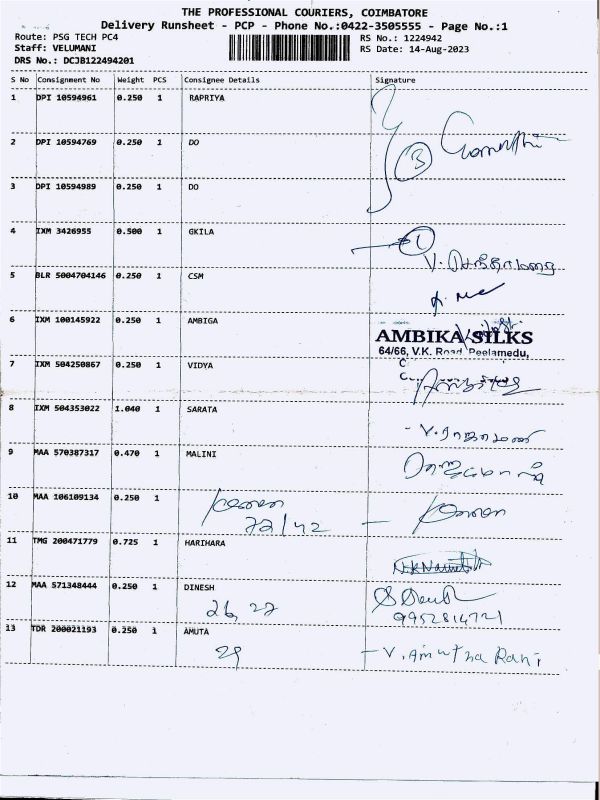 THE PROFESSIONAL COURIERS, COIMBATORE
Delivery Runsheet - PCP - Phone No.:0422-3505555 - Page No.:1
Route: PSG TECH PC4 RS No.: 1224942
Staff: VELUMANI RS Date: 14-Aug-2023
DRS No.: DCJB122494201
S No Consignment No Weight PCS Consignee Details Signature
1 DPI 10594961 0.250 1 RAPRIYA
2 DPI 10594769 0.250 1 DO
3
3 DPI 10594989 0.250 1 DO
4 IXM 3426955 0.500 1 GKILA
1
5 BLR 5004704146 0.250 1 CSM
6 IXM 100145922 0.250 1 AMBIGA
AMBIKA SILKS
64/66, V.K. Road, Peelamedu,
7 IXM 504250867 0.250 1 VIDYA
8 IXM 504353022 1.040 1 SARATA
9 MAA 570387317 0.470 1 MALINI
10 MAA 106109134 0.250 1
72/42
11 TMG 200471779 0.725 1 HARIHARA
12 MAA 571348444 0.250 1 DINESH
26, 27
9952814721
13 TDR 200021193 0.250 1 AMUTA
29 V. Amutha Rani